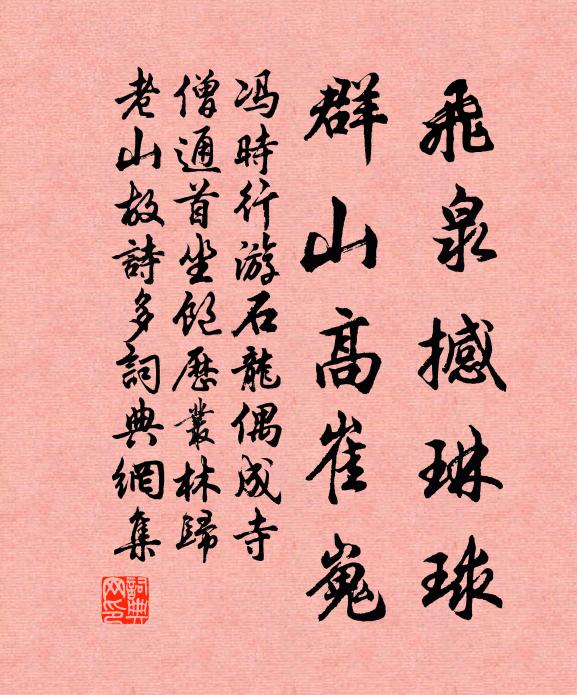 飛泉撼琳球
群山高崔嵬
馮時行游石龍偶成寺
僧通首坐飽歷叢林歸
老山故詩多詞典網集
詞典
网印